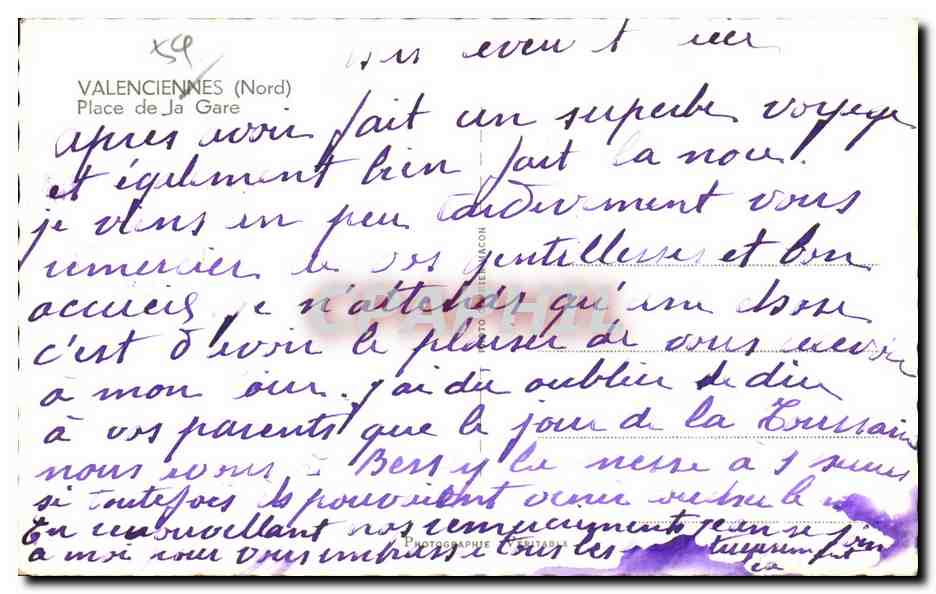 VALENCIENNES (Nord)
Place de la Gare
après avoir fait un superbe voyage
et également bien fait la noce.
je viens un peu tardivement vous
remercier de vos gentillesses et bon
accueil, je n'attends qu'une chose
c'est d'avoir le plaisir de vous recevoir
à mon tour. j'ai du oublier de dire
à vos parents que le jour de la Toussaint
nous avons à Bersy la messe à 9 heures
si toutefois ils pouvaient venir
En renouvellant nos remerciements
à moi pour vous embrasser tous les
PHOTOGRAPHIE VÉRITABLE
CPAPHIL